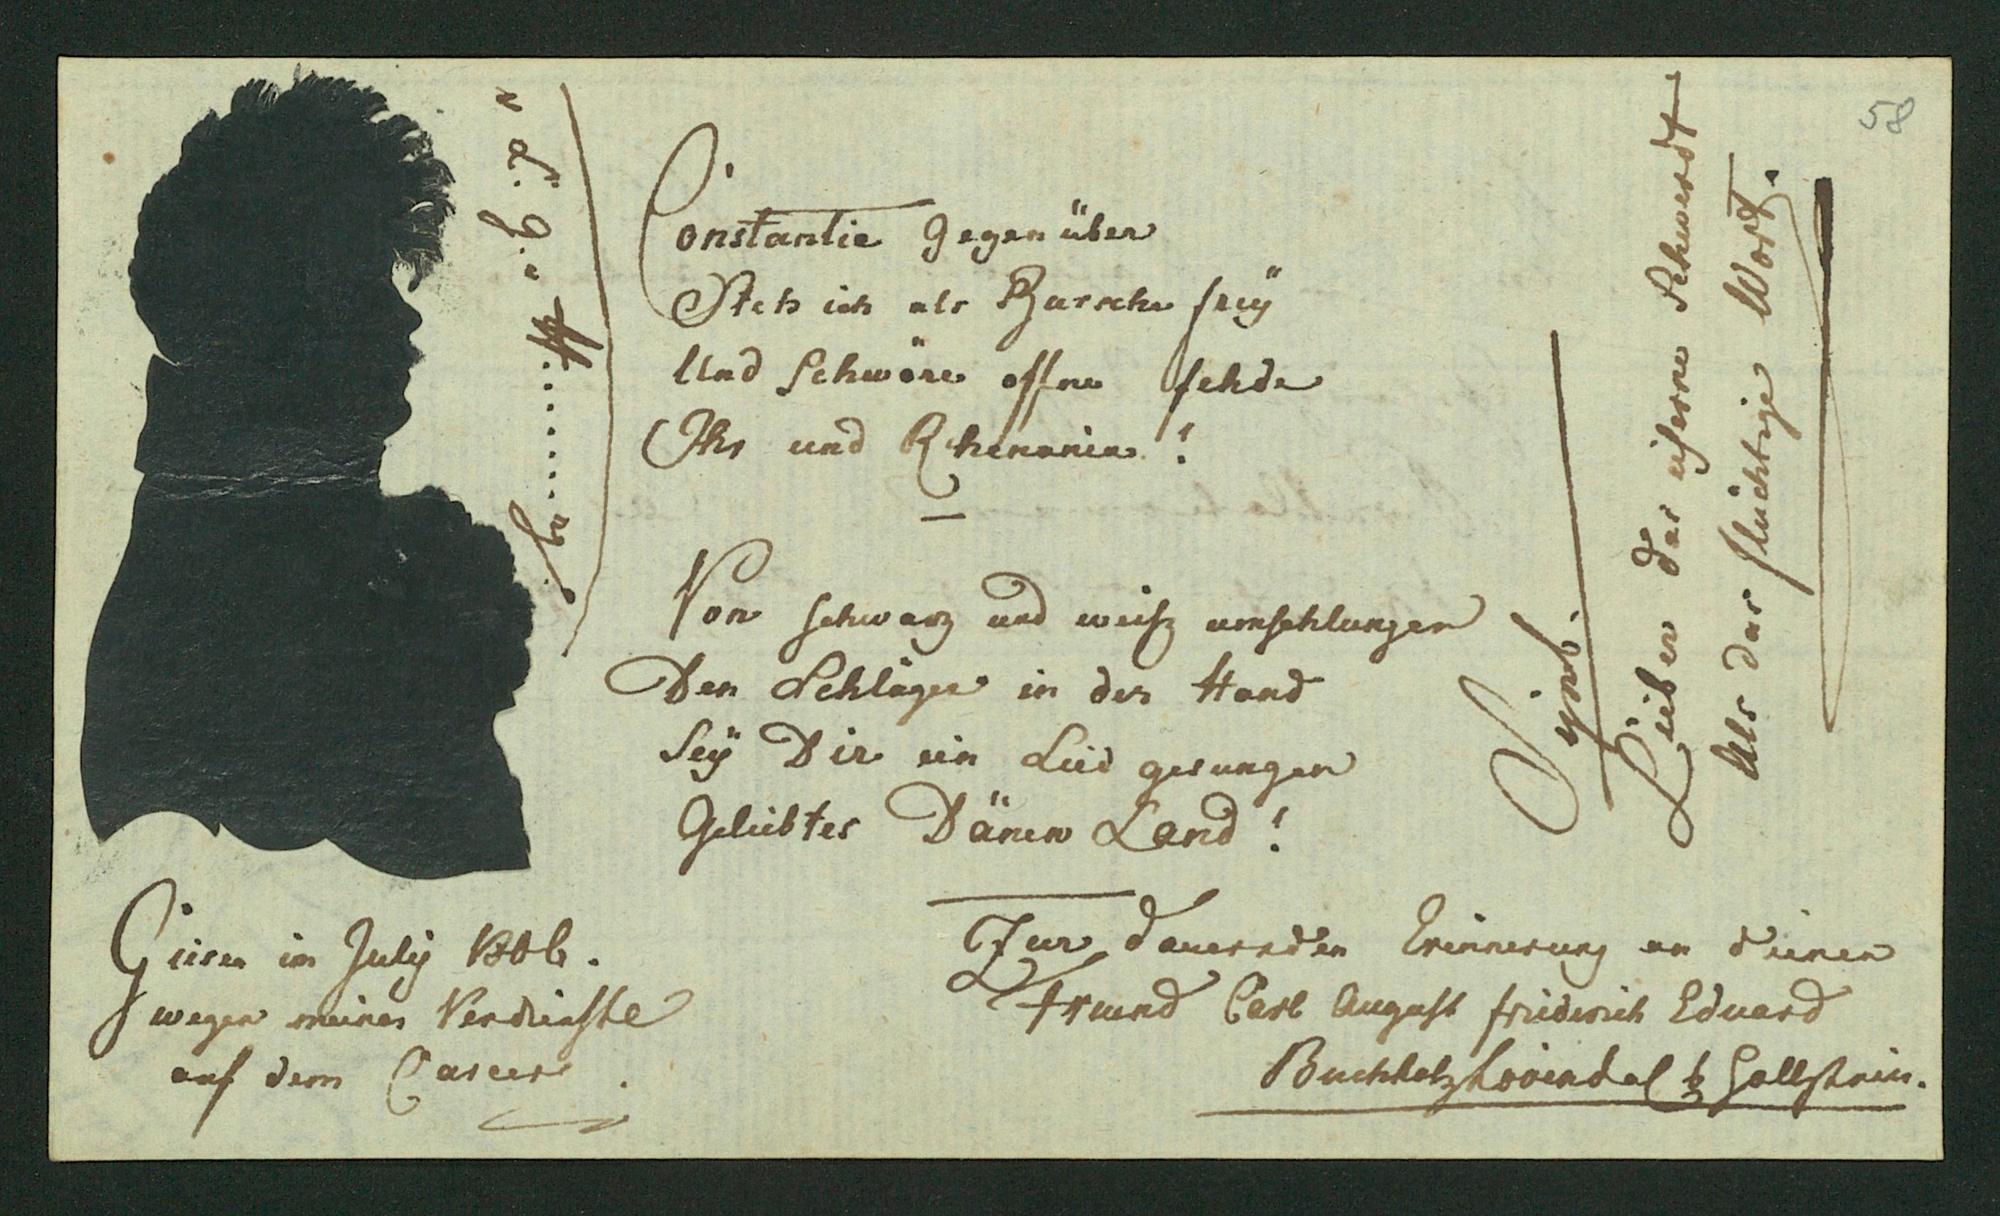 58
Constantie gegenüber
Steh ich als Bursche freÿ
Und Schwöre offne fehde
Ihr und Rhenania!
Von schwarz und weiß umschlungen
Den Schläger in der Hand
Seÿ Dir ein Lied gesungen
Geliebtes Dänen Land!
Symb.
Lieber das eiserne Schwerdt
Als das flüchtige Wort.
Giesen im Julÿ
wegen meiner Verdienste
auf dem Carcer.
Zur dauernden Erinnerung an deinen
Freund Carl August friederich Eduard